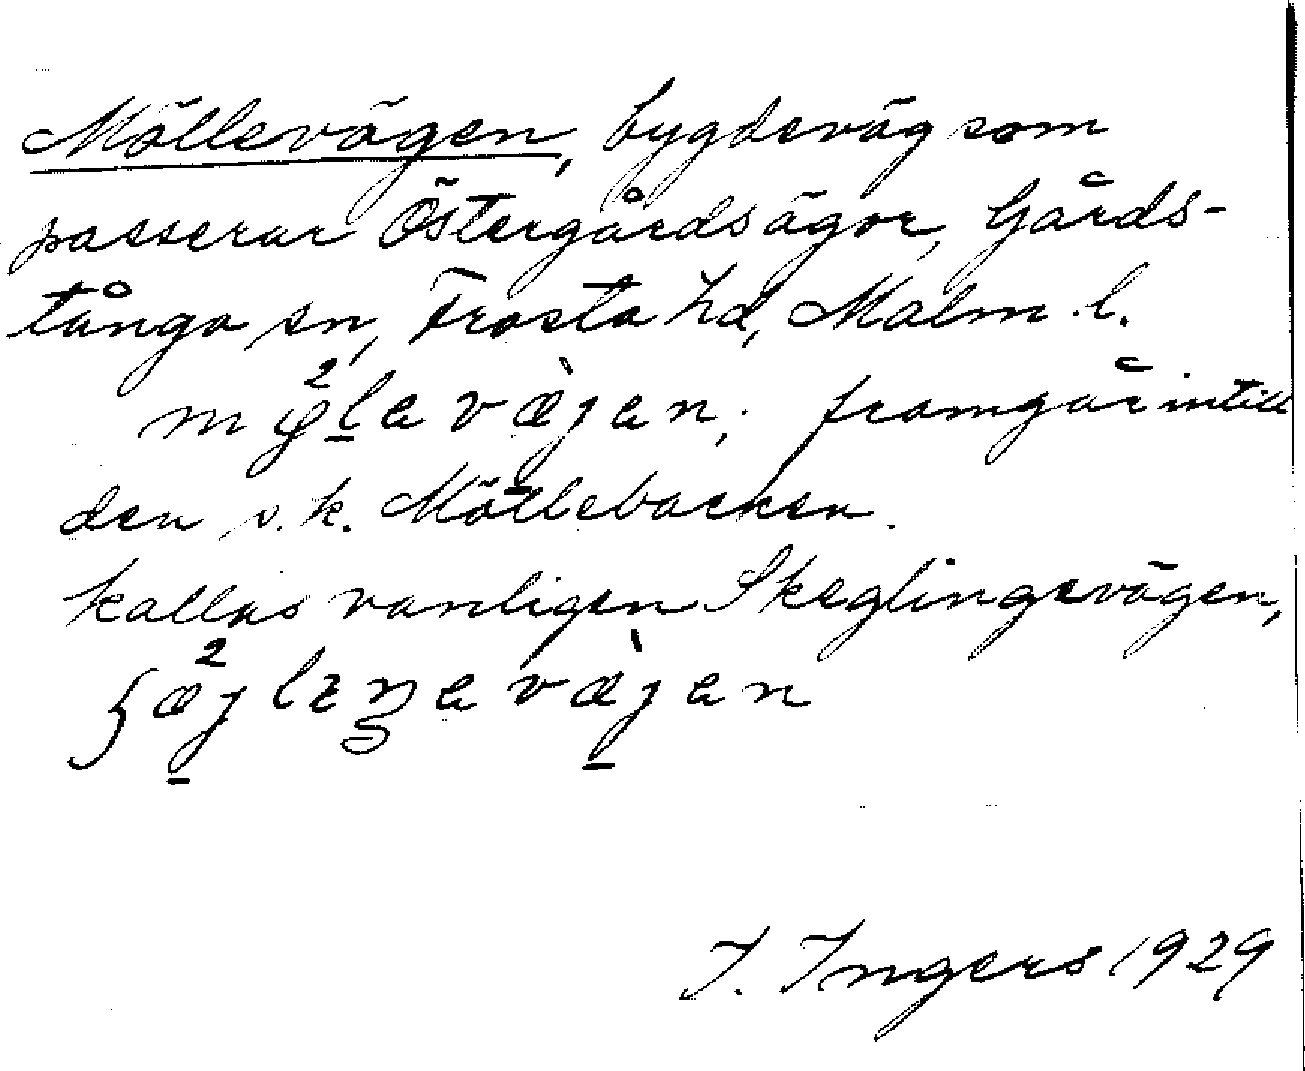 Möllevägen, bygdeväg som
passerar Östergårds ägor, Gårds-
tånga sn, Frosta hd, Malm. l.
framgår intill
den s.k. Möllebacken.
kallas vanligen Skeglingevägen,
I. Ingers 1929